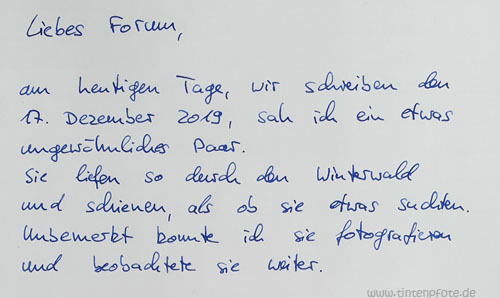 Liebes Forum,
am heutigen Tage, wir schreiben den
17. Dezember 2019, sah ich ein etwas
ungewöhnliches Paar.
Sie liefen so durch den Winterwald
und schienen, als ob sie etwas suchten.
Unbemerkt konnte ich sie fotografieren
und beobachtete sie weiter.
www.tintenpfote.de